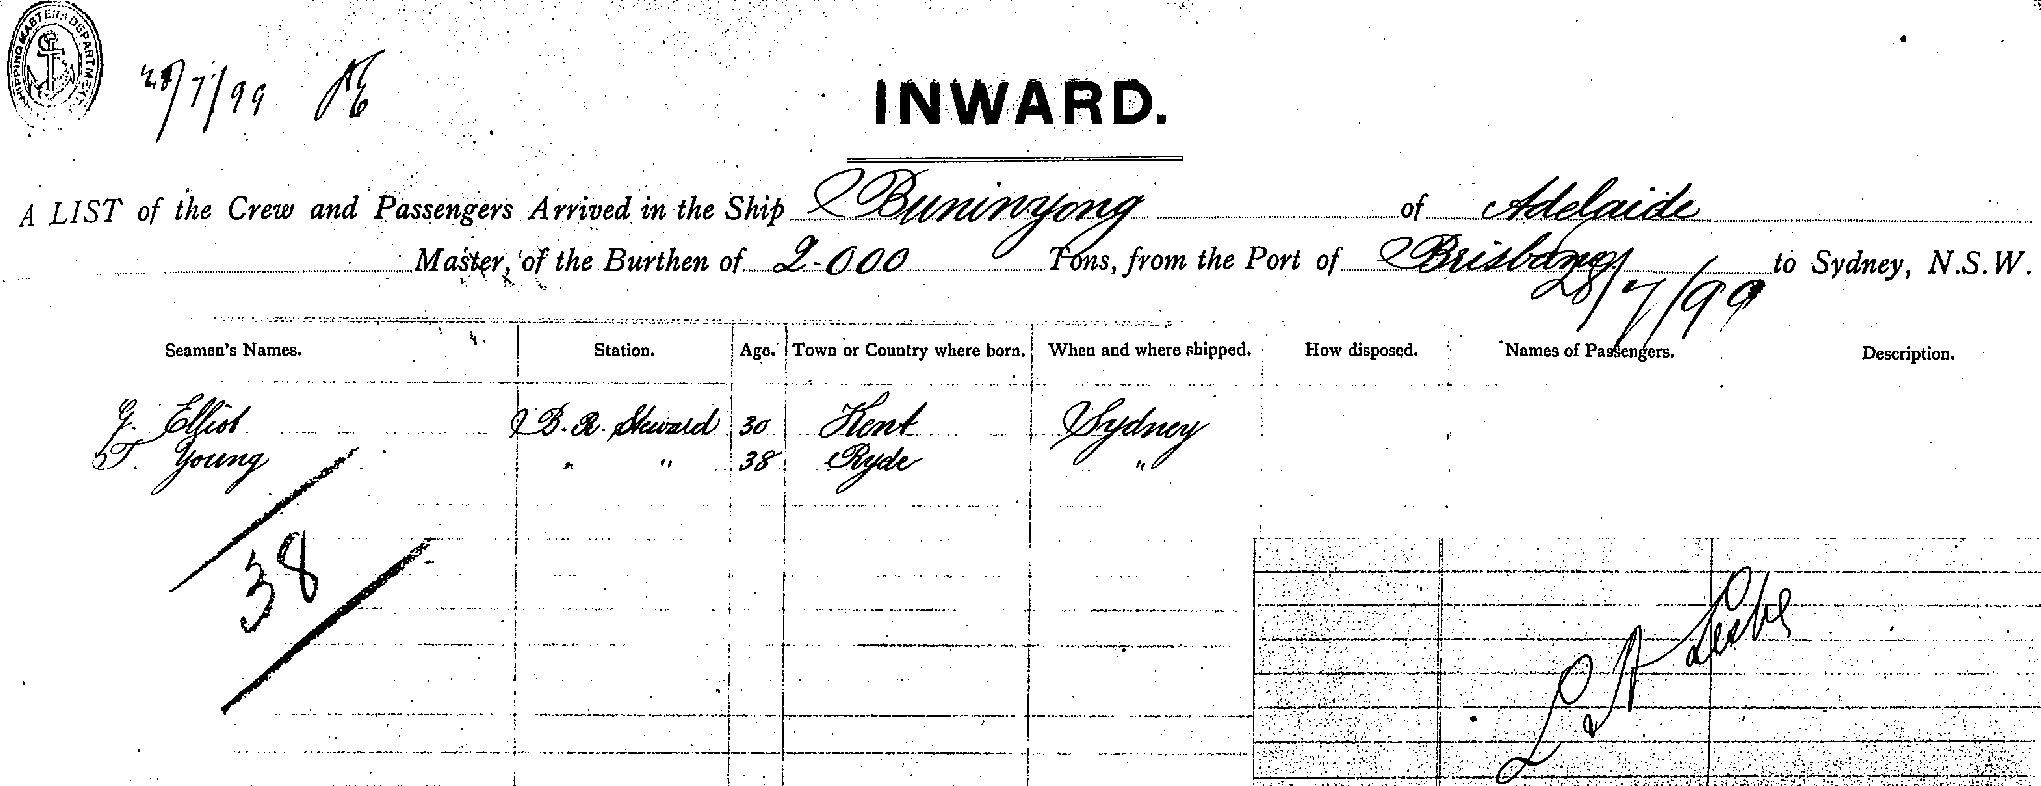 SHIPPING MASTER'S DEPARTMENT
28/7/99
INWARD.
A LIST of the Crew and Passengers Arrived in the Ship Buninyong of Adelaide
Master, of the Burthen of 2.000 Tons, from the Port of Brisbane to Sydney, N.S.W.
28/7/99
Seamen's Names. Station. Age. Town or Country where born. When and where shipped. How disposed. Names of Passengers. Description.
G. Elliot B. R. Steward 30 Kent Sydney
T. Young " " 38 Ryde "
38
L A